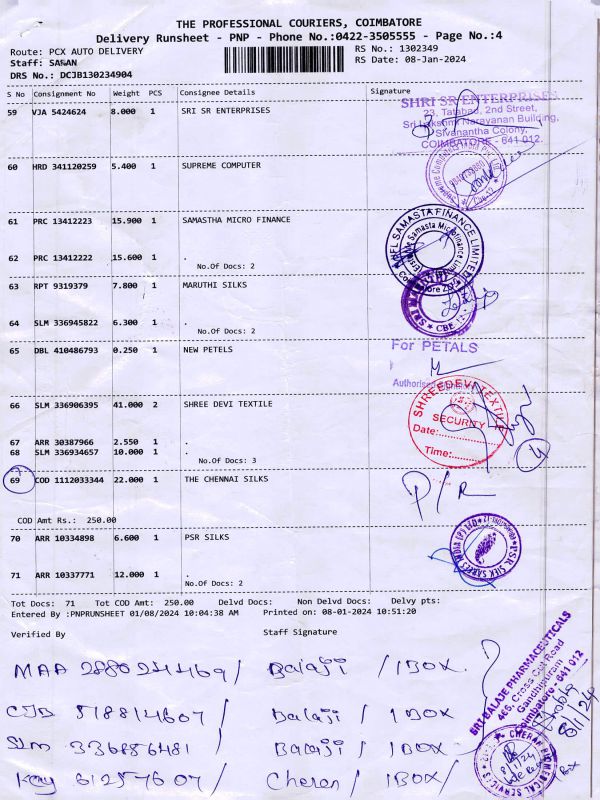 THE PROFESSIONAL COURIERS, COIMBATORE
Delivery Runsheet - PNP - Phone No.:0422-3505555 - Page No.:4
Route: PCX AUTO DELIVERY
RS No.: 1302349
Staff: SASAN
RS Date: 08-Jan-2024
DRS No.: DCJB130234904
S No Consignment No Weight PCS Consignee Details Signature
59 VJA 5424624 8.000 1 SRI SR ENTERPRISES
SHRI SR ENTERPRISES
23, Tatabad, 2nd Street,
Sri Lakshmi Narayanan Building,
Sivanantha Colony,
COIMBATORE - 641 012.
60 HRD 341120259 5.400 1 SUPREME COMPUTER
61 PRC 13412223 15.900 1 SAMASTHA MICRO FINANCE
62 PRC 13412222 15.600 1 .
No.Of Docs: 2
63 RPT 9319379 7.800 1 MARUTHI SILKS
64 SLM 336945822 6.300 1 .
No.Of Docs: 2
65 DBL 410486793 0.250 1 NEW PETELS
For PETALS
Authorised
66 SLM 336906395 41.000 2 SHREE DEVI TEXTILE
SHREEDEVI TEXTILE
SECURITY
Date:
Time:
67 ARR 30387966 2.550 1 .
68 SLM 336934657 10.000 1 .
No.Of Docs: 3
4
69 COD 1112033344 22.000 1 THE CHENNAI SILKS
P/R
COD Amt Rs.: 250.00
70 ARR 10334898 6.600 1 PSR SILKS
71 ARR 10337771 12.000 1 .
No.Of Docs: 2
Tot Docs: 71 Tot COD Amt: 250.00 Delvd Docs: Non Delvd Docs: Delvy pts:
Entered By :PNPRUNSHEET 01/08/2024 10:04:38 AM Printed on: 08-01-2024 10:51:20
Verified By Staff Signature
MAA 288024469 / Balaji / 1 BOX
CJB 518814607 / Balaji / 1 BOX
SLM 336856481 / Balaji / 1 BOX
Key 61257607 / Cheran / 1 BOX /
SRI BALAJE PHARMACEUTICALS
465, Cross Cut Road
Gandhipuram
Coimbatore - 641 012
8/1/24